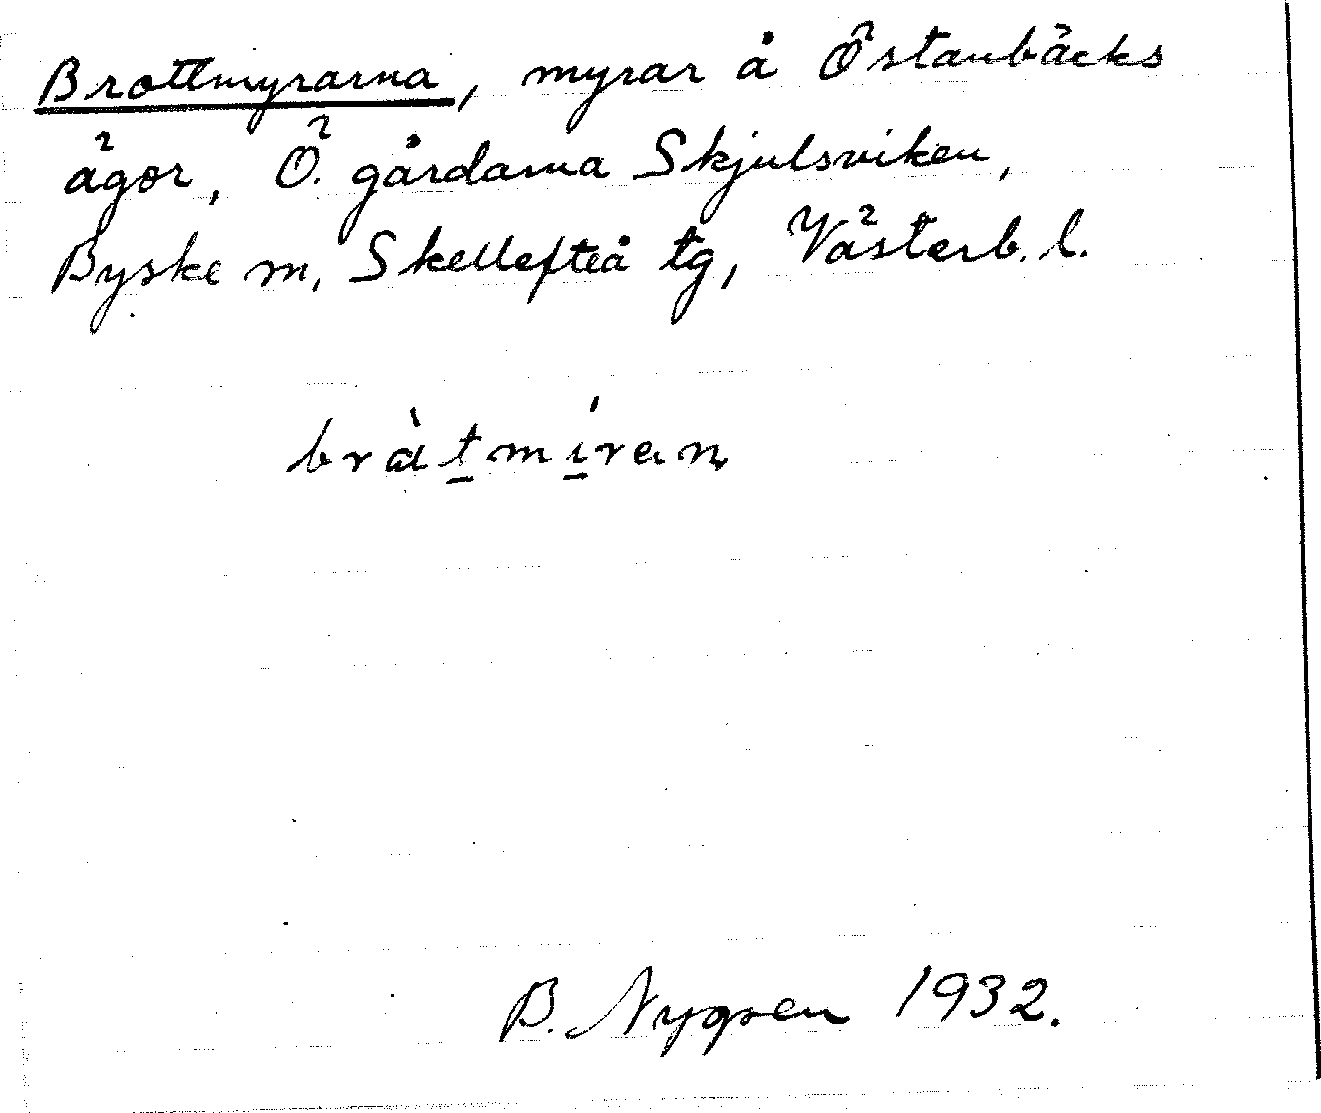 Brottmyrarna, myrar å Östanbäcks
ägor, Ö. gårdarna Skjulsviken,
Byske m, Skellefteå tg, Västerb. l.
bràt̲mí̲ran
B. Nygren 1932.